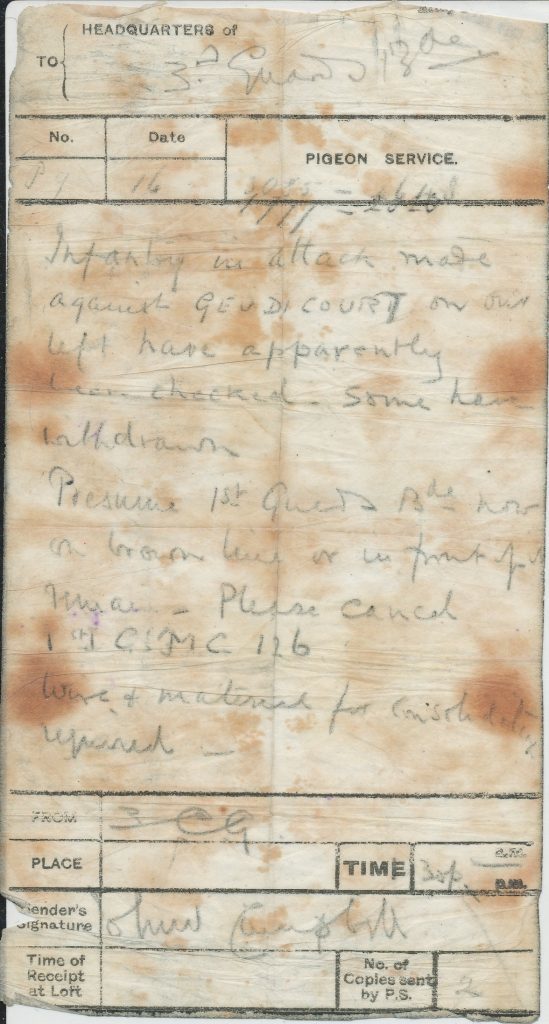 HEADQUARTERS of
TO
3rd Guards Bde
No. Date
PIGEON SERVICE.
16
Infantry in attack made
against GEUDICOURT on our
left have apparently
been checked - Some have
withdrawn
Presume 1st Guards Bde now
on brown line or in front of it
Please cancel
126
Wire & material for consolidating
required -
FROM 3 CG
PLACE
TIME 30 p. a.m.
p.m.
Sender's
Signature
Campbell
Time of
Receipt
at Loft
No. of
Copies sent
by P.S.
2